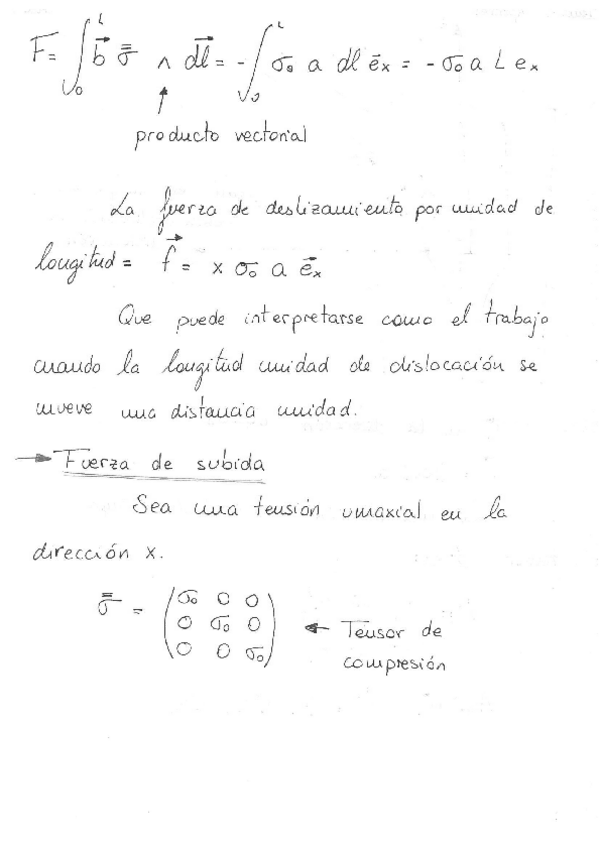 F = ∫₀ᴸ b⃗ σ̿ ∧ dl⃗ = - ∫₀ᴸ σ₀ a dl e⃗ₓ = - σ₀ a L eₓ
↑
producto vectorial
La fuerza de deslizamiento por unidad de
longitud = f⃗ = x σ₀ a e⃗ₓ
Que puede interpretarse como el trabajo
cuando la longitud unidad de dislocación se
mueve una distancia unidad.
→ Fuerza de subida
Sea una tensión umaxial en la
dirección x.
σ̿ = (σ₀ 0 0
0 σ₀ 0 ← Tensor de
0 0 σ₀) compresión